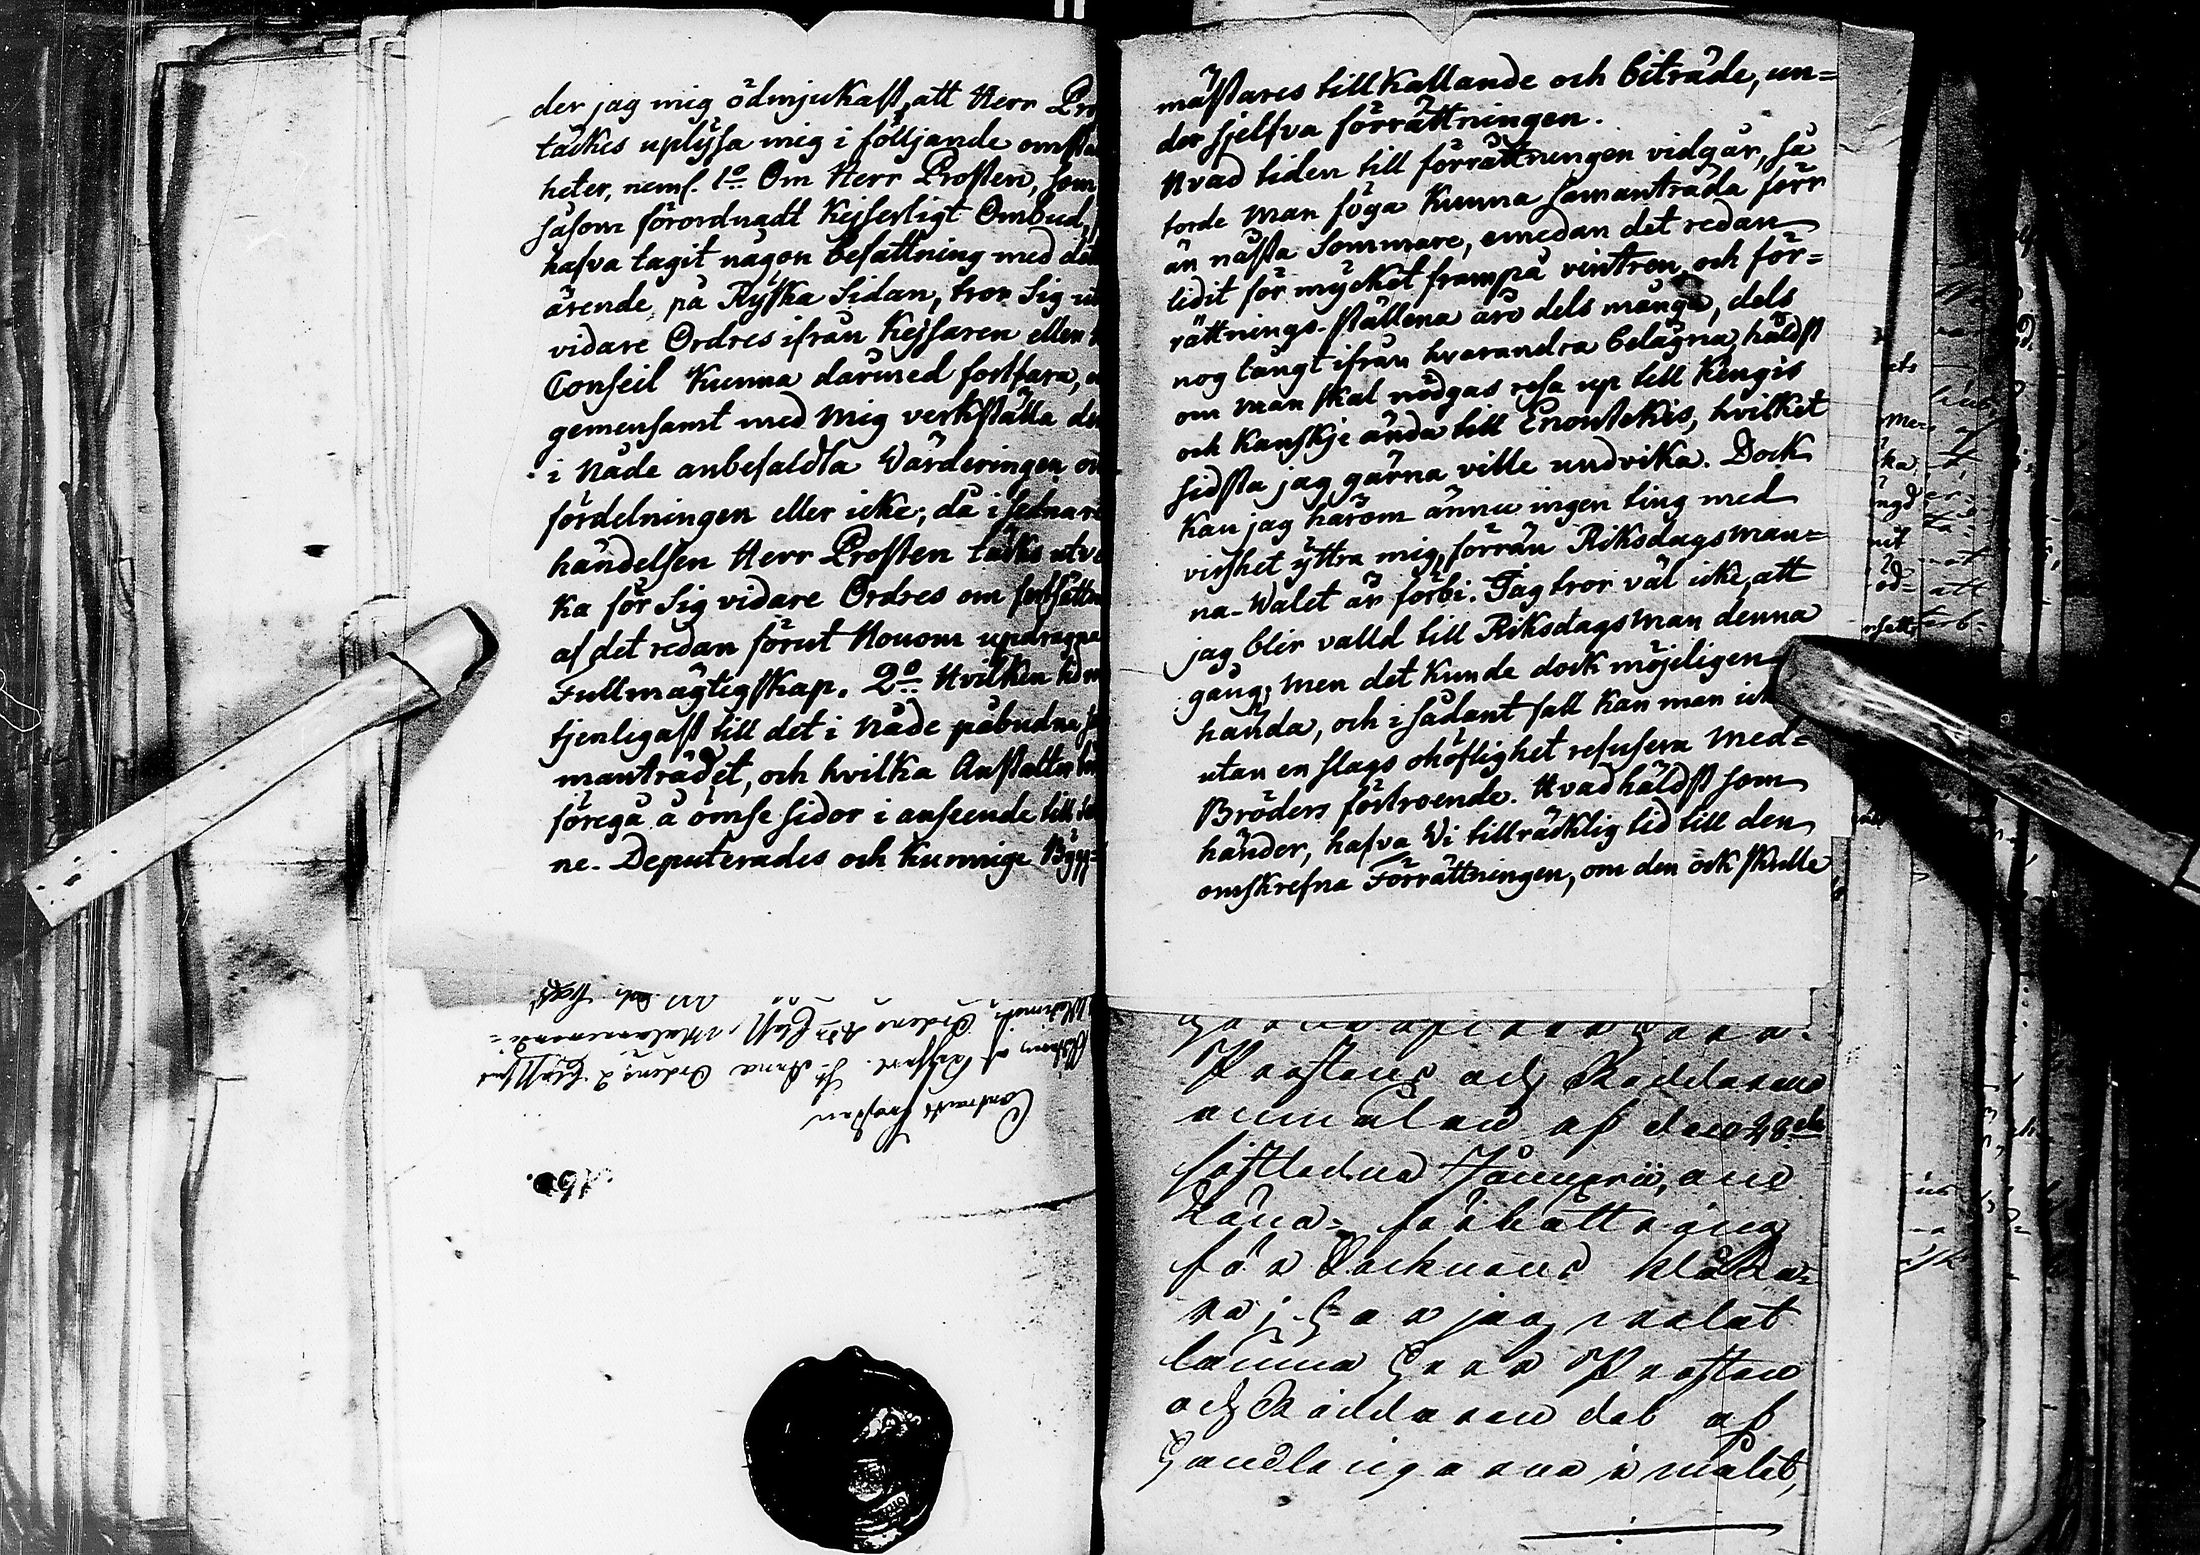 der jag mig ödmjukast, att Herr Pro
täckes uplysa mig i följande omstä
heter, neml. 1o Om Herr Prosten, som
såsom förordnadt Kejserligt Ombud,
hafva tagit någon befattning med det
ärende på Ryska Sidan, tror Sig ut
vidare Ordres ifrån Kejsaren eller
Conseil Kunna därmed fortfara,
gemensamt med Mig verkställa den
i Nåde anbefaldta Wärderingen och
fördelningen eller icke; då i sednare
händelsen Herr Prosten täcks utvä
ka för Sig vidare Ordres om fortsättn
af det redan förut Honom updragne
Fullmägtigskap. 2o Hvilken tid
tjenligast till det i Nåde påbudna
manträdet, och hvilka Anstalter
föregå å ömse sidor i anseende till
ne Deputerades och Kunnige Bygg-
mästares tillkallande och biträde, un=
der sjelfva förrättningen.
Hvad tiden till förrättningen vidgår, så
torde man föga Kunna samanträda förr
än nästa Sommare, emedan det redan
lidit för mycket frampå vintren och för=
rättnings-ställena äro dels många, dels
nog långt ifrån hvarandra belägna, häldst
om man skal nödgas resa up till Kengis
och Kanskje ända till Enontekis, hvilket
sidsta jag gärna ville undvika. Dock
Kan jag härom ännu ingen ting med
visshet yttra mig, förrän Riksdagsman=
na-Walet är förbi. Jag tror väl icke, att
jag blir valld till Riksdagsman denna
gång; men det Kunde dock möjeligen
hända, och i sådant fall Kan man ick
utan en slags ohöflighet refusera Med=
Bröders förtroende. Hvad häldst som
händer, hafva Vi tillräcklig tid till den
omskrefna Förrättningen, om den ock skulle
Contracts Prosten
af Kejserl. St. Anna Ordens 2 Class
Ordens
Prostens och Riddarens
anmälan af den 28de
sistledne Januarii, om
Löne-förbättring
för Klocka=
re; har jag
lämna Herr Prosten
och Riddaren del af
Handlingarna i målet,